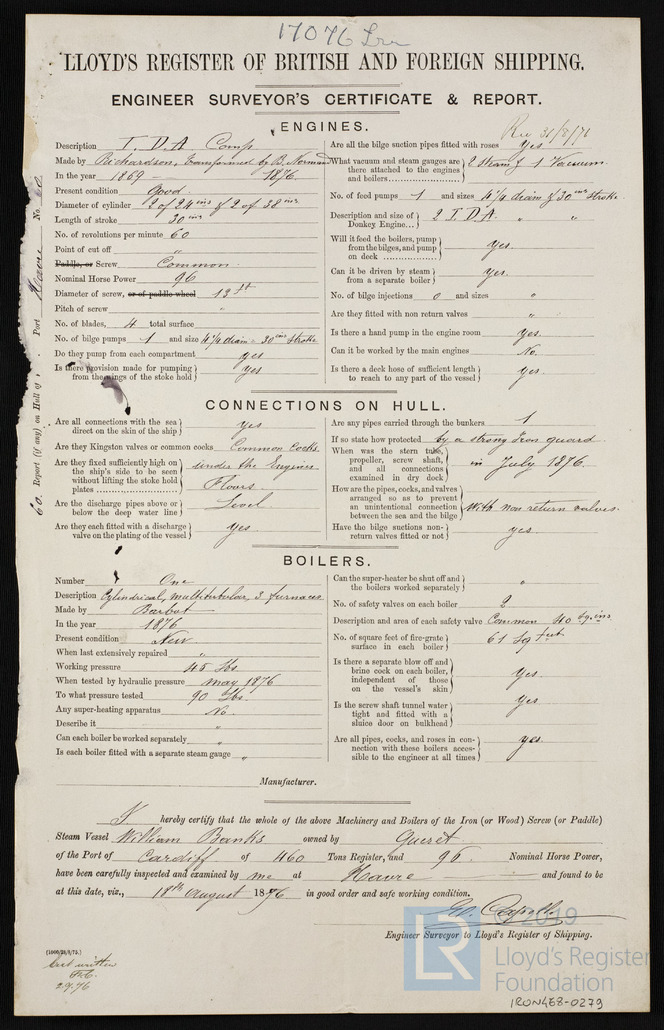 17076 Iro
LLOYD'S REGISTER OF BRITISH AND FOREIGN SHIPPING.
ENGINEER SURVEYOR'S CERTIFICATE & REPORT.
Rec 31/8/76
60. Report (if any) on Hull of Port Havre No 60
ENGINES.
Description T. D. A Comp
Made by Richardson, transformed by B. Normand
In the year 1869 — 1876
Present condition Good
Diameter of cylinder 2 of 24 ins & 2 of 38 ins
Length of stroke 30 ins
No. of revolutions per minute 60
Point of cut off "
Paddle, or Screw Common
Nominal Horse Power 96
Diameter of screw, or of paddle wheel 13 ft
Pitch of screw "
No. of blades, 4 total surface
No. of bilge pumps 1 and size 4 1/4 diam = 30 ins Stroke
Do they pump from each compartment yes
Is there provision made for pumping from the wings of the stoke hold } yes
Are all the bilge suction pipes fitted with roses yes
What vacuum and steam gauges are there attached to the engines and boilers } 2 Steam & 1 Vacuum
No. of feed pumps 1 and sizes 4 1/4 diam & 30 ins Stroke
Description and size of Donkey Engine... } 2 T. D A. " "
Will it feed the boilers, pump from the bilges, and pump on deck } yes.
Can it be driven by steam from a separate boiler } yes.
No. of bilge injections 0 and sizes "
Are they fitted with non return valves "
Is there a hand pump in the engine room yes.
Can it be worked by the main engines No.
Is there a deck hose of sufficient length to reach to any part of the vessel } yes.
CONNECTIONS ON HULL.
Are all connections with the sea direct on the skin of the ship } yes
Are they Kingston valves or common cocks Common Cocks
Are they fixed sufficiently high on the ship's side to be seen without lifting the stoke hold plates } under the Engines Floors.
Are the discharge pipes above or below the deep water line } Level
Are they each fitted with a discharge valve on the plating of the vessel } Yes
Are any pipes carried through the bunkers 1
If so state how protected by a strong Iron guard
When was the stern tube, propeller, screw shaft, and all connections examined in dry dock } in July 1876.
How are the pipes, cocks, and valves arranged so as to prevent an unintentional connection between the sea and the bilge } With non return valves.
Have the bilge suctions non-return valves fitted or not } yes.
BOILERS.
Number One
Description Cylindrical, multitubular, 3 furnaces
Made by Barbot
In the year 1876
Present condition New
When last extensively repaired "
Working pressure 45 lbs.
When tested by hydraulic pressure may 1876
To what pressure tested 90 lbs.
Any super-heating apparatus No.
Describe it "
Can each boiler be worked separately "
Is each boiler fitted with a separate steam gauge "
Can the super-heater be shut off and the boilers worked separately } "
No. of safety valves on each boiler 2
Description and area of each safety valve Common 40 sq. ins
No. of square feet of fire-grate surface in each boiler } 61 sq feet
Is there a separate blow off and brine cock on each boiler, independent of those on the vessel's skin } yes.
Is the screw shaft tunnel water tight and fitted with a sluice door on bulkhead } yes
Are all pipes, cocks, and roses in connection with these boilers accessible to the engineer at all times } yes.
Manufacturer.
I hereby certify that the whole of the above Machinery and Boilers of the Iron (or Wood) Screw (or Paddle)
Steam Vessel William Banks owned by Gueret
of the Port of Cardiff of 460 Tons Register, and 96. Nominal Horse Power,
have been carefully inspected and examined by me at Havre and found to be
at this date, viz., 18th August 1876 in good order and safe working condition.
Engineer Surveyor to Lloyd's Register of Shipping.
Cert written
2.9.76
© 2019
LR
Lloyd's Register
Foundation
IRON468-0279